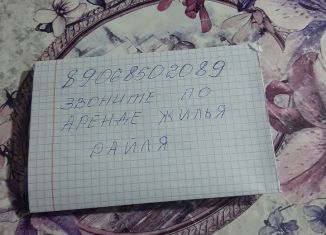 89068502089
ЗВОНИТЕ ПО
АРЕНДЕ ЖИЛЬЯ
РАИЛЯ